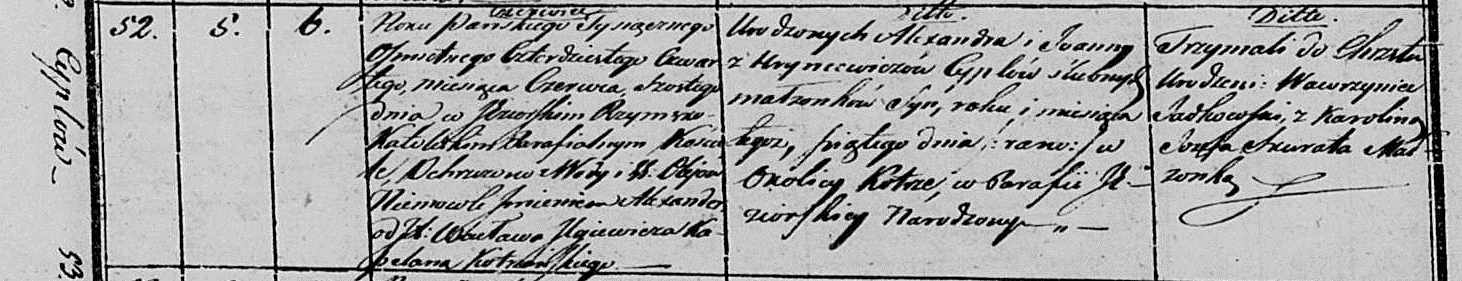 Cyplów
52.
5.
6.
Czerwiec
Roku Pańskiego Tysiącznego
Ośmsetnego Czterdziestego Czwar-
tego, miesiąca Czerwca, szóstego
dnia w Rzymsko-
Katolickim Parafialnym Koście
le Ochrzczono z Wody i SS. Olejow
Niemowle Imieniem Alexander
od JX: Wacława Ka-
pelana
Ditto.
Urodzonych Alexandra i Joanny
z Hryncewiczów Cyplów ślubnych
małżonków Syn, roku, i miesiąca
tegoż, piątego dnia /: rano :/ w
Okolicy Kotrze, w Parafii
Narodzony
Ditto.
Trzymali do Chrztu
Urodzeni: Wawrzyniec
z Karoliną
Józefa Małżonką
53.